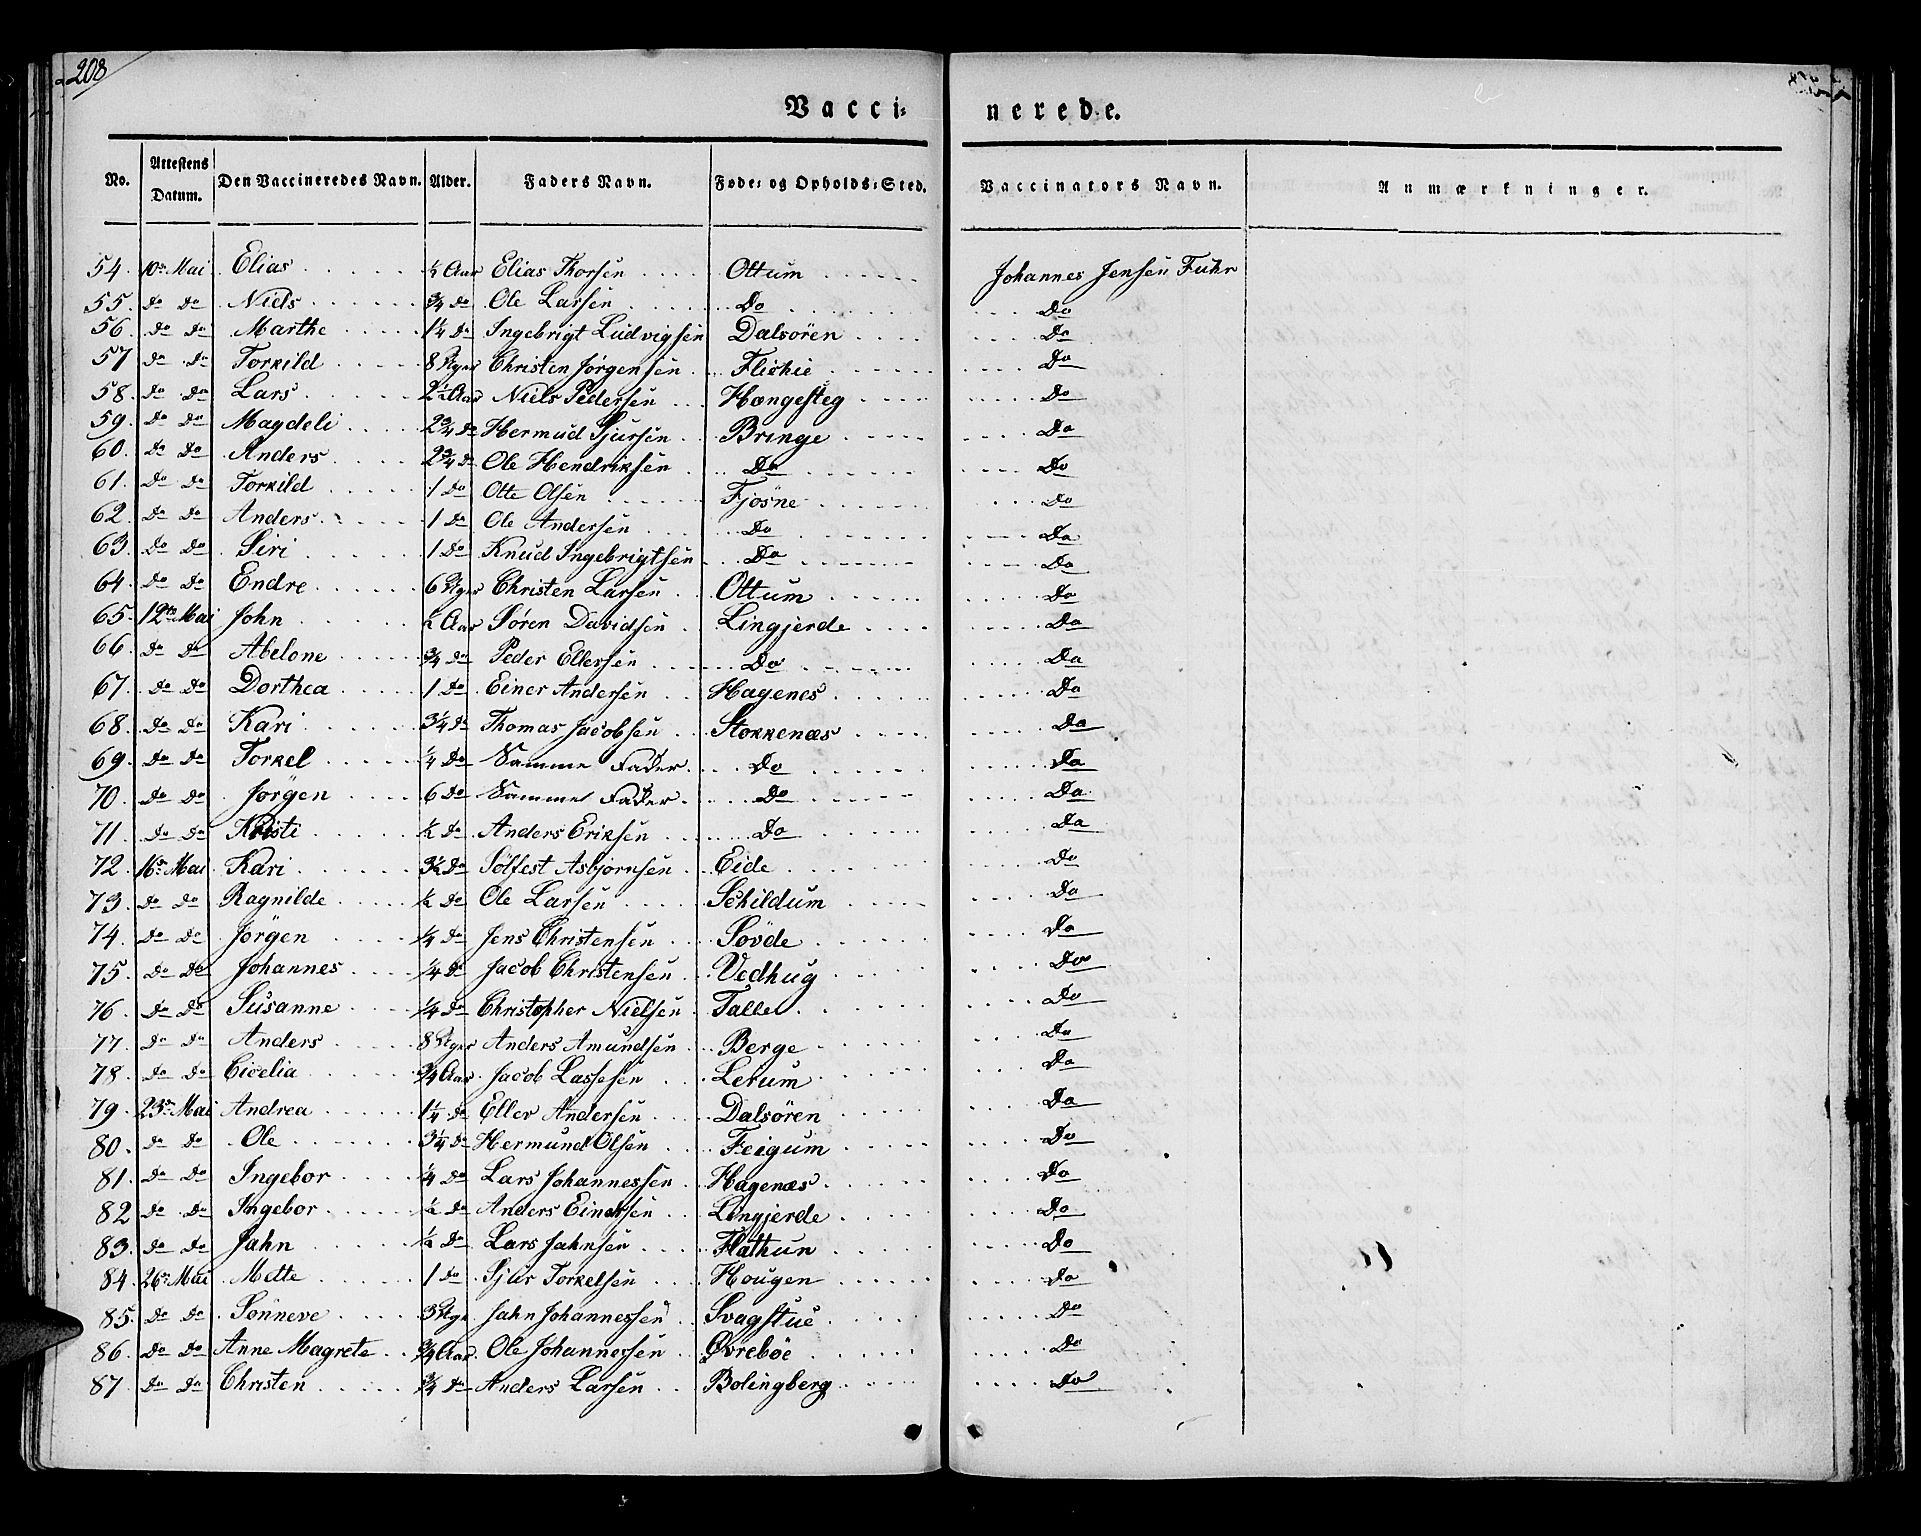 208
Vacci- nerede.
No. Attestens Datum. Den Vaccineredes Navn. Alder. Faders Navn. Føde- og Opholds-Sted. Vaccinators Navn. Anmærkninger.
54. 10de Mai Elias Aar Elias Thorsen Ottum Johannes Jensen Fuhr
55. Do Do Niels 3/4 Do Ole Larsen Do Do
56. Do Do Marthe 1 1/4 Do Ingebrigt Ludvigsen Dalsören Do
57 Do Do Torkild 8 Uger Christen Jørgensen Flickie Do
58. Do Do Lars 2 1/2 Aar Niels Pedersen Hængesteg Do
59. Do Do Magdeli 2 3/4 Do Hermud Sjursen Bringe Do
60. Do Do Anders 2 3/4 Do Ole Hendriksen Do Do
61. Do Do Torkild 1 Do Otte Olsen Fjösne Do
62. Do Do Anders 1 Do Ole Andersen Do Do
63. Do Do Siri 1 Do Knud Ingebrigtsen Do Do
64. Do Do Endre 6 Uger Christen Larsen Ottum Do
65. 12te Mai John 1/2 Aar Søren Davidsen Lingjerde Do
66. Do Do Abelone 3/4 Do Peder Ellersen Do Do
67. Do Do Dorthea 1 Do Einer Andersen Hagenes Do
68. Do Do Kari 3 1/4 Do Thomas Jacobsen Stokkenæs Do
69. Do Do Torkel 1/4 Do Samme Fader Do Do
70. Do Do Jørgen 6 Do Samme Fader Do Do
71. Do Do Kristi 1/2 Do Anders Eriksen Do Do
72. 16de Mai Kari 3 1/2 Do Sølfest Asbjørnsen Eide Do
73. Do Do Ragnilde 1/2 Do Ole Larsen Schildum Do
74. Do Do Jörgen 1/4 Do Jens Christensen Søvde Do
75. Do Do Johannes 1/4 Do Jacob Christensen Vedhug Do
76. Do Do Susanne 1/4 Do Christopher Nielsen Talle Do
77. Do Do Anders 8 Uger Anders Amundsen Berge Do
78. Do Do Cicelia 3/4 Aar Jacob Lassesen Lerum Do
79. 23de Mai Andrea 1 1/4 Do Eller Andersen Dalsören Do
80. Do Do Ole 3 1/4 Do Hermund Olsen Feigum Do
81. Do Do Ingebor 1/4 Do Lars Johannessen Hagenæs Do
82 Do Do Ingebor 1/2 Do Anders Einersen Lingjerde Do
83. Do Do Jahn 1/2 Do Lars Jahnsen Flathun Do
84. 26de Mai Mette 1 Do Sjur Torkelsen Hougen Do
85. Do Do Sönneve 3 Uger Jahn Johannessen Svagstue Do
86. Do Do Anne Magrete 3/4 Aar Ole Johannessen Øvrebøe Do
87. Do Do Christen 3/4 Do Anders Larsen Bolingberg Do